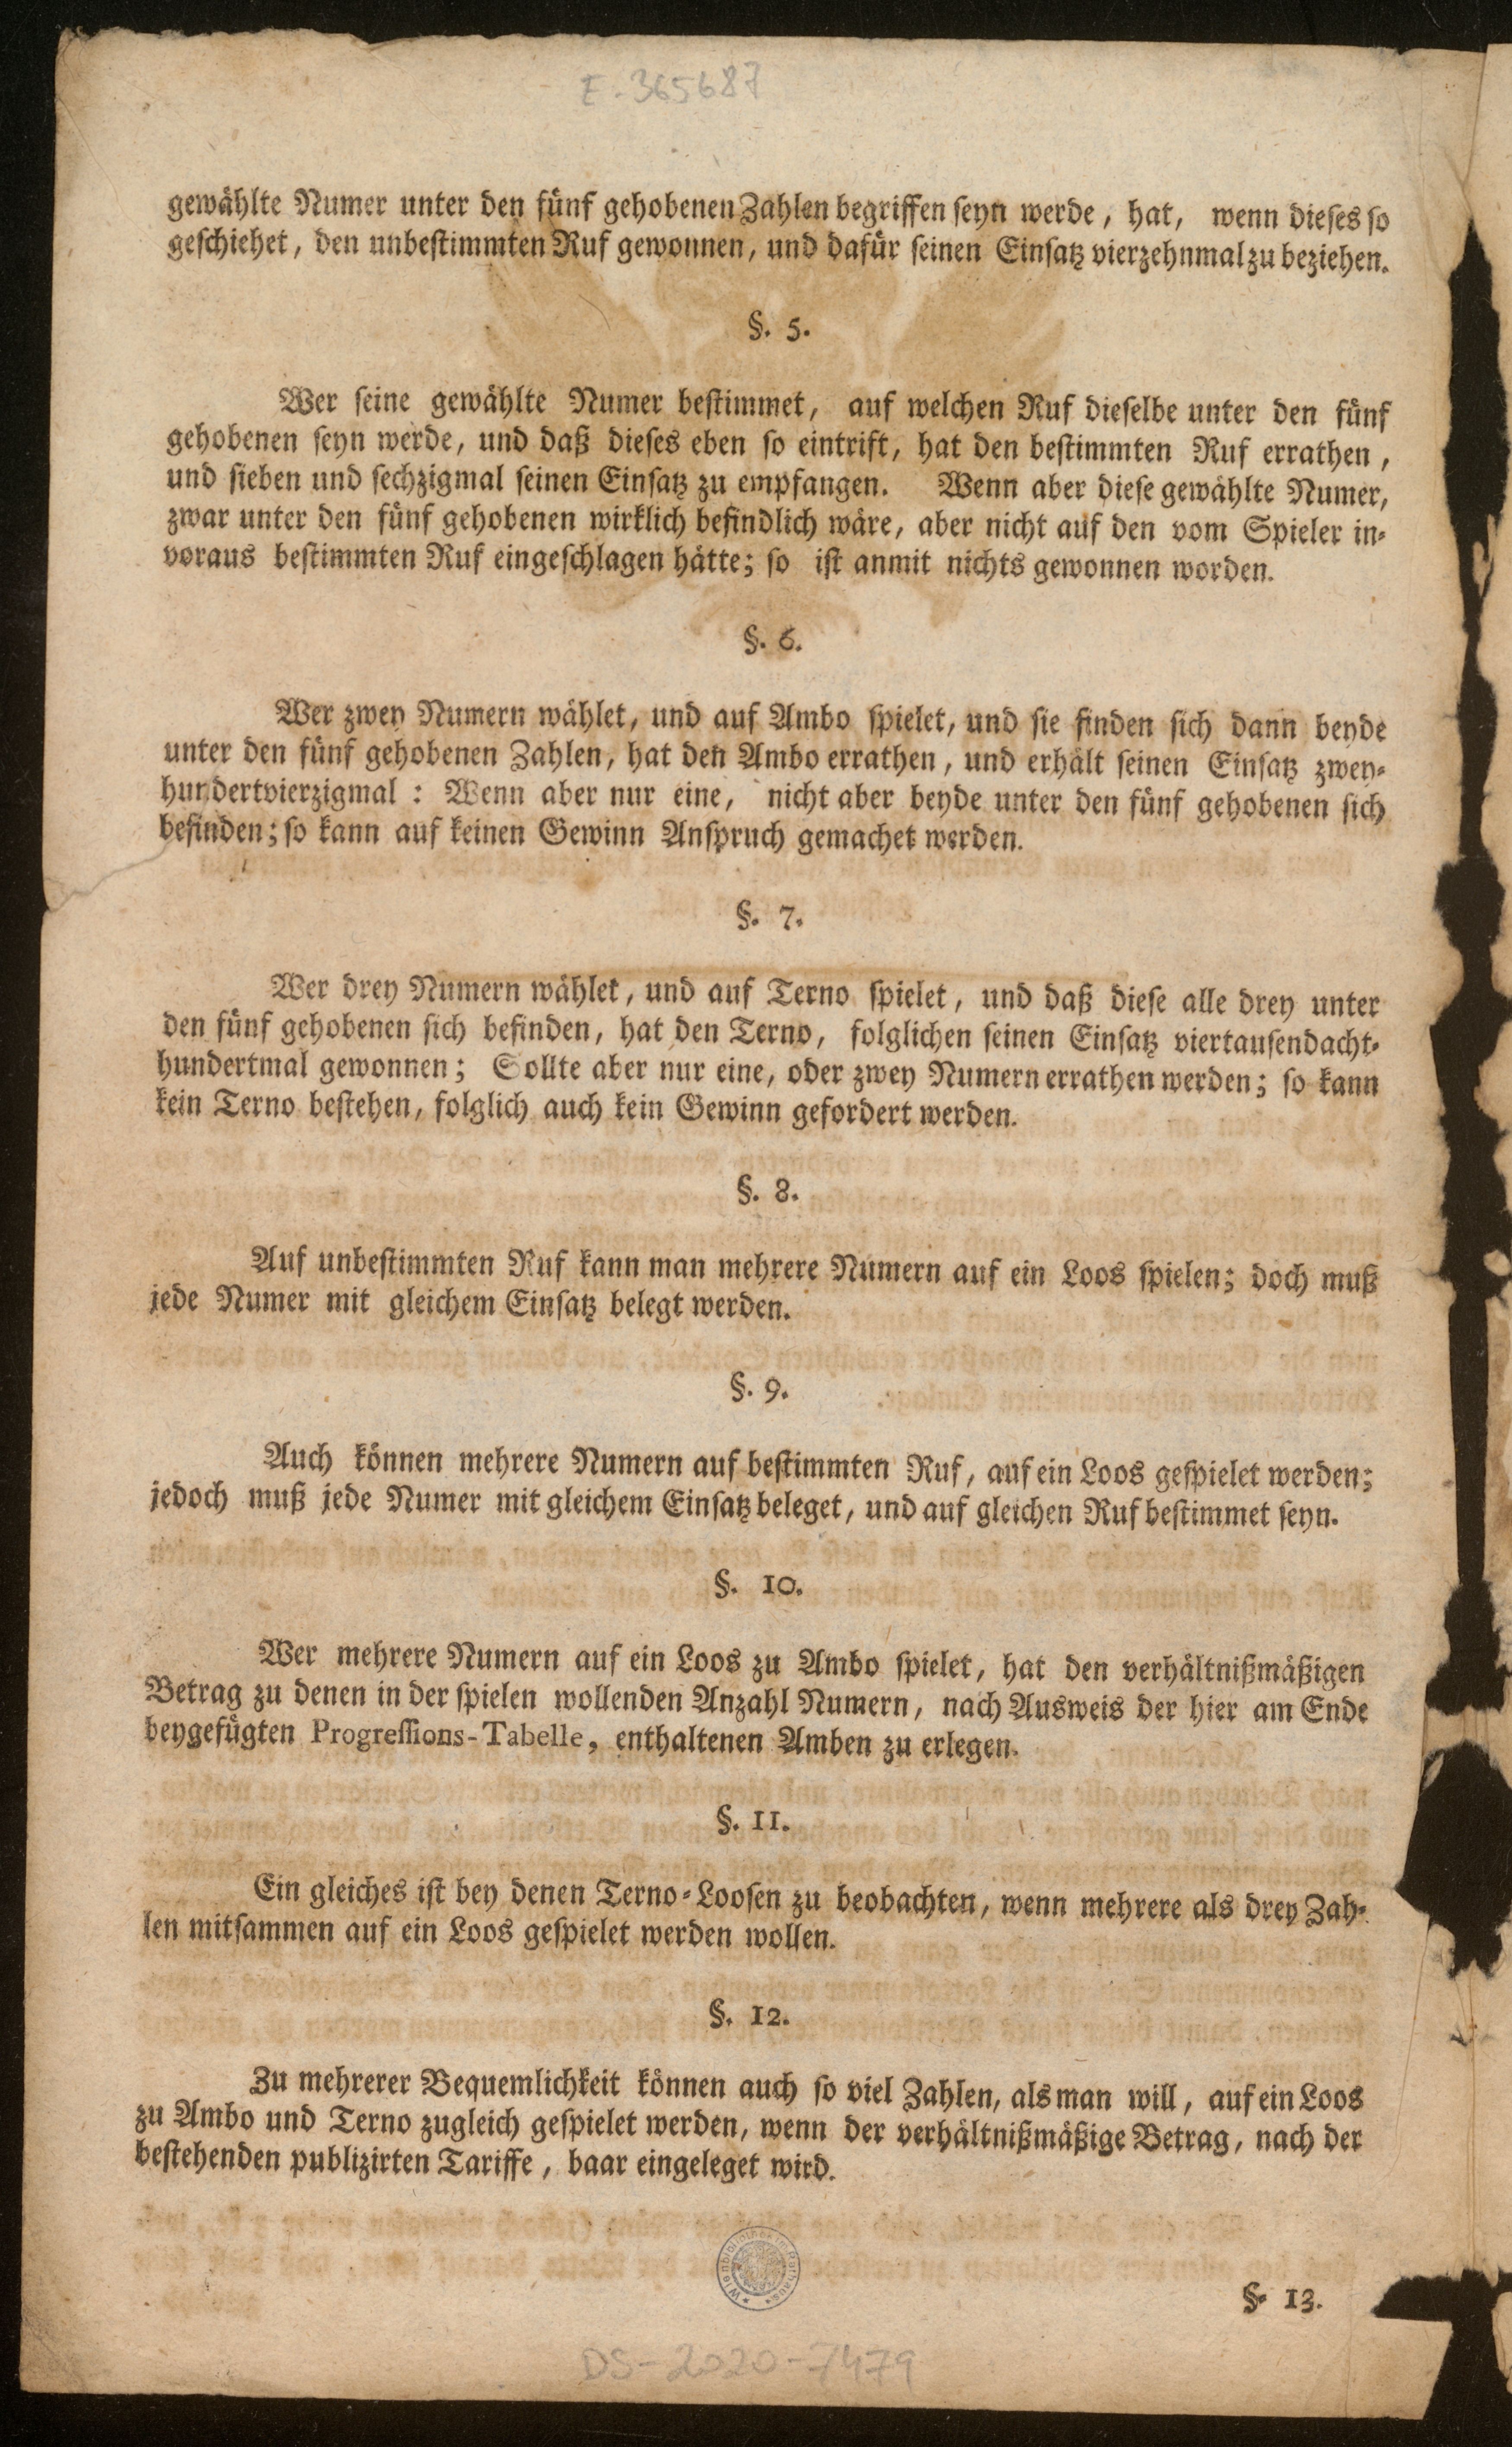 E-365687
gewählte Numer unter den fünf gehobenen Zahlen begriffen seyn werde, hat, wenn dieses so
geschiehet, den unbestimmten Ruf gewonnen, und dafür seinen Einsatz vierzehnmal zu beziehen.
§. 5.
Wer seine gewählte Numer bestimmet, auf welchen Ruf dieselbe unter den fünf
gehobenen seyn werde, und daß dieses eben so eintrift, hat den bestimmten Ruf errathen,
und sieben und sechzigmal seinen Einsatz zu empfangen. Wenn aber diese gewählte Numer,
zwar unter den fünf gehobenen wirklich befindlich wäre, aber nicht auf den vom Spieler in-
voraus bestimmten Ruf eingeschlagen hätte; so ist anmit nichts gewonnen worden.
§. 6.
Wer zwey Numern wählet, und auf Ambo spielet, und sie finden sich dann beyde
unter den fünf gehobenen Zahlen, hat den Ambo errathen, und erhält seinen Einsatz zwey-
hundertvierzigmal: Wenn aber nur eine, nicht aber beyde unter den fünf gehobenen sich
befinden; so kann auf keinen Gewinn Anspruch gemachet werden.
§. 7.
Wer drey Numern wählet, und auf Terno spielet, und daß diese alle drey unter
den fünf gehobenen sich befinden, hat den Terno, folglichen seinen Einsatz viertausendacht-
hundertmal gewonnen; Sollte aber nur eine, oder zwey Numern errathen werden; so kann
kein Terno bestehen, folglich auch kein Gewinn gefordert werden.
§. 8.
Auf unbestimmten Ruf kann man mehrere Numern auf ein Loos spielen; doch muß
jede Numer mit gleichem Einsatz belegt werden.
§. 9.
Auch können mehrere Numern auf bestimmten Ruf, auf ein Loos gespielet werden;
jedoch muß jede Numer mit gleichem Einsatz beleget, und auf gleichen Ruf bestimmet seyn.
§. 10.
Wer mehrere Numern auf ein Loos zu Ambo spielet, hat den verhältnißmäßigen
Betrag zu denen in der spielen wollenden Anzahl Numern, nach Ausweis der hier am Ende
beygefügten Progressions-Tabelle, enthaltenen Amben zu erlegen.
§. 11.
Ein gleiches ist bey denen Terno-Loosen zu beobachten, wenn mehrere als drey Zah-
len mitsammen auf ein Loos gespielet werden wollen.
§. 12.
Zu mehrerer Bequemlichkeit können auch so viel Zahlen, als man will, auf ein Loos
zu Ambo und Terno zugleich gespielet werden, wenn der verhältnißmäßige Betrag, nach der
bestehenden publizirten Tariffe, baar eingeleget wird.
Wienbibliothek im Rathaus
§. 13.
DS-2020-7479